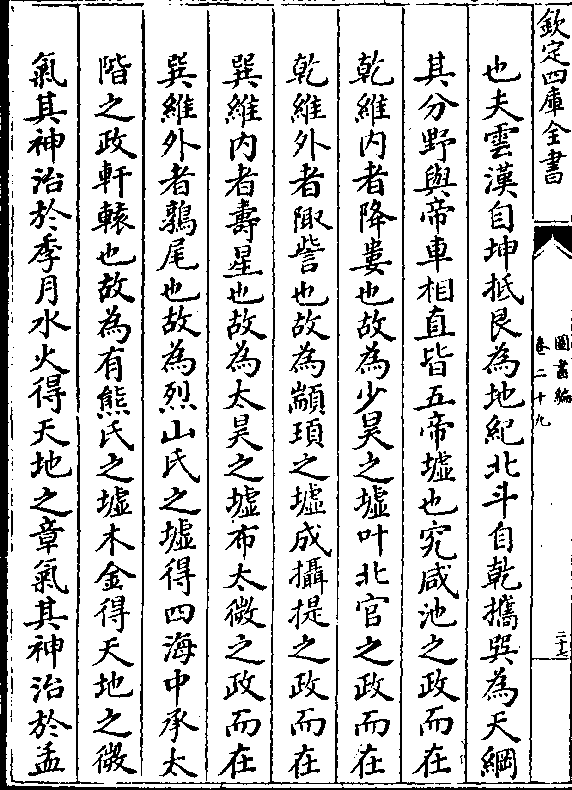 欽定四庫全書
圖書編
卷二十九
二十七
也夫雲漢自坤抵艮為地紀北斗自乾攜巽為天綱
其分野與帝車相直皆五帝墟也究咸池之政而在
乾維内者降婁也故為少昊之墟叶北宮之政而在
乾維外者陬訾也故為顓頊之墟成攝提之政而在
巽維内者壽星也故為太昊之墟布太微之政而在
巽維外者鶉尾也故為烈山氏之墟得四海中承太
階之政軒轅也故為有熊氏之墟木金得天地之微
氣其神治於季月水火得天地之章氣其神治於孟